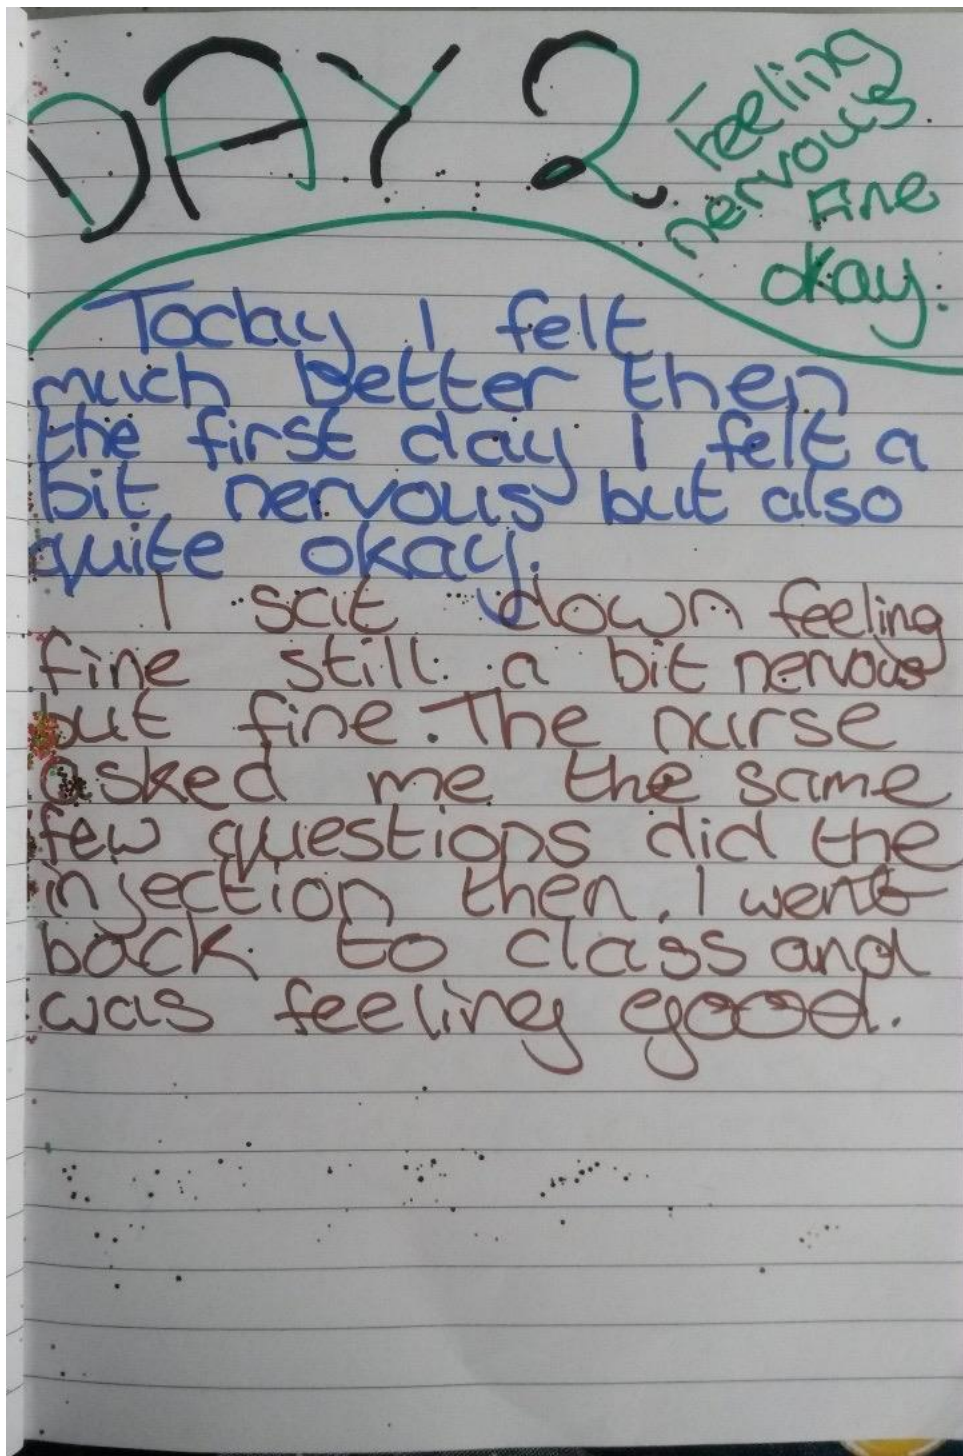 DAY 2
feeling
nervous
Fine
okay.
Today I felt
much better then
the first day I felt a
bit nervous but also
quite okay.
I sat down feeling
fine still a bit nervous
but fine. The nurse
asked me the same
few questions did the
injection then, I went
back to class and
was feeling good.